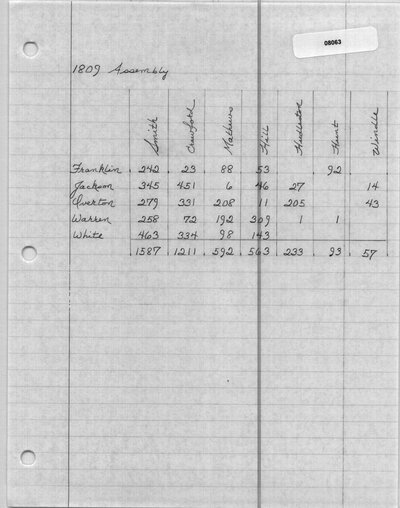 08063
1809 Assembly
Smith Crawford Mathews Hill Huddleston Hunt Windle
Franklin 242 23 88 53 92
Jackson 345 451 6 46 27 14
Overton 279 331 208 11 205 43
Warren 258 72 192 309 1 1
White 463 334 98 143
1587 1211 592 563 233 93 57